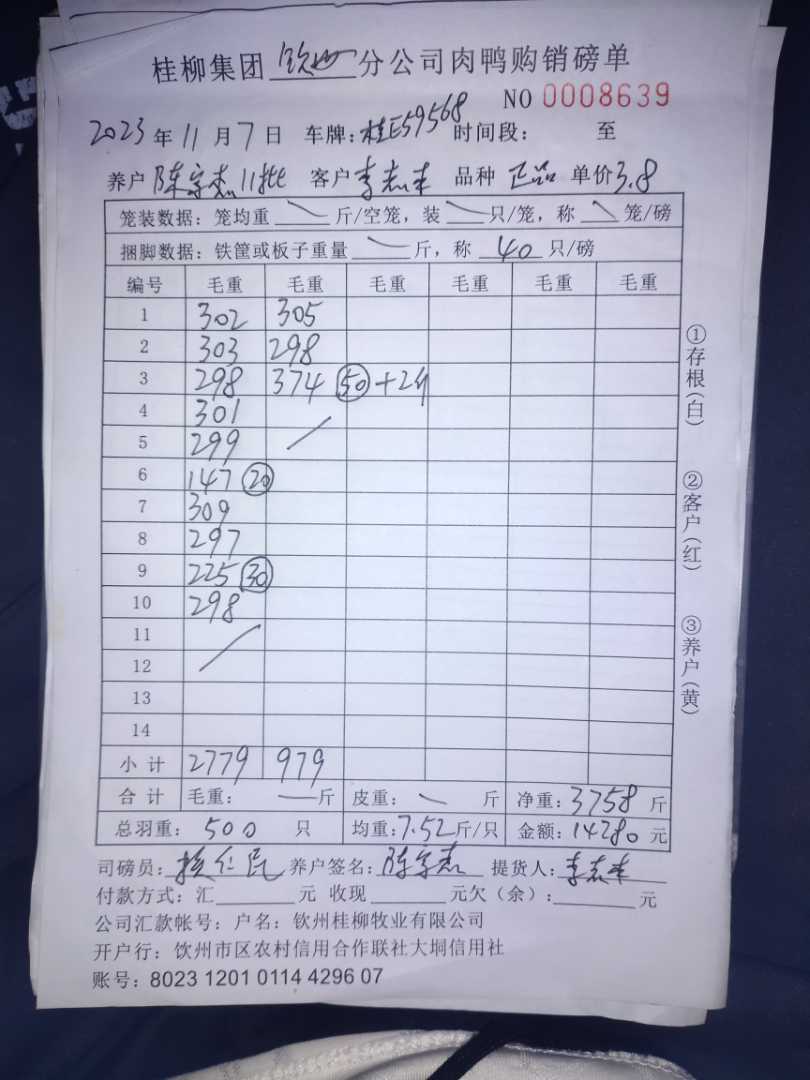 桂柳集团 钦州 分公司肉鸭购销磅单
NO 0008639
2023 年 11 月 7 日 车牌：桂E59568 时间段： 至
养户 陈宗杰11批 客户 李志丰 品种 正品 单价 3.8
笼装数据：笼均重 斤/空笼，装 只/笼，称 笼/磅
捆脚数据：铁筐或板子重量 斤，称 40 只/磅
编号 毛重 毛重 毛重 毛重 毛重 毛重
1 302 305
2 303 298
3 298 374 50 +2斤
4 301
5 299
6 147 20
7 309
8 297
9 225 30
10 298
11
12
13
14
小 计 2779 979
合 计 毛重： 一斤 皮重： 斤 净重：3758 斤
总羽重： 500 只 均重：7.52斤/只 金额：14280 元
司磅员： 养户签名：陈宗杰 提货人：李志丰
付款方式：汇 元 收现 元欠（余）： 元
公司汇款帐号：户名：钦州桂柳牧业有限公司
开户行：饮州市区农村信用合作联社大垌信用社
账号：8023 1201 0114 4296 07
①存根（白）
②客户（红）
③养户（黄）